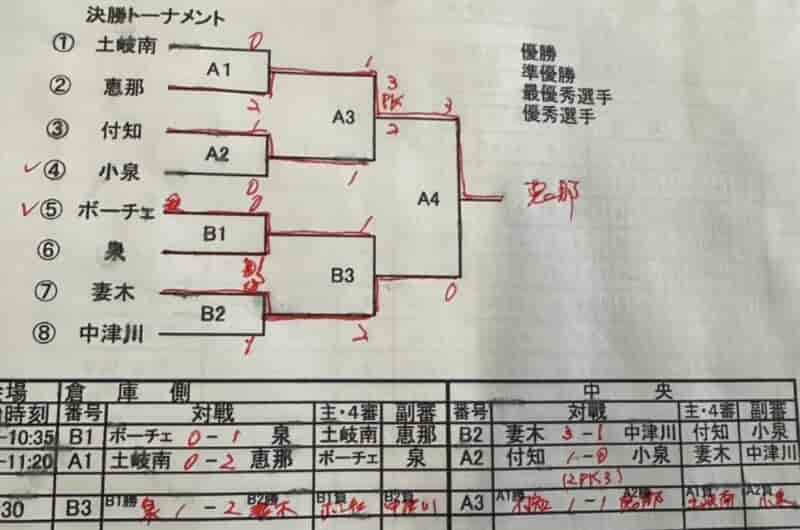 決勝トーナメント
① 土岐南 0
② 恵那 2
A1
③ 付知 1
④ 小泉 0
A2
⑤ ボーチェ 0
⑥ 泉
B1
⑦ 妻木
⑧ 中津川 1
B2
1 3 PK
A3
2 1
1
B3
2
3
A4
0
恵那
優勝
準優勝
最優秀選手
優秀選手
倉庫側 中央
時刻 番号 対戦 主・4審 副審 番号 対戦 主・4審 副審
-10:35 B1 ボーチェ 0-1 泉 土岐南 恵那 B2 妻木 3-1 中津川 付知 小泉
-11:20 A1 土岐南 0-2 恵那 ボーチェ 泉 A2 付知 1-0 小泉 妻木 中津川
(2PK3)
30 B3 B1勝 泉 1-2 B2勝 妻木 B1負 B2負 中津川 A3 A1勝 1-1 A2勝 A1負 土岐南 A2負 小泉